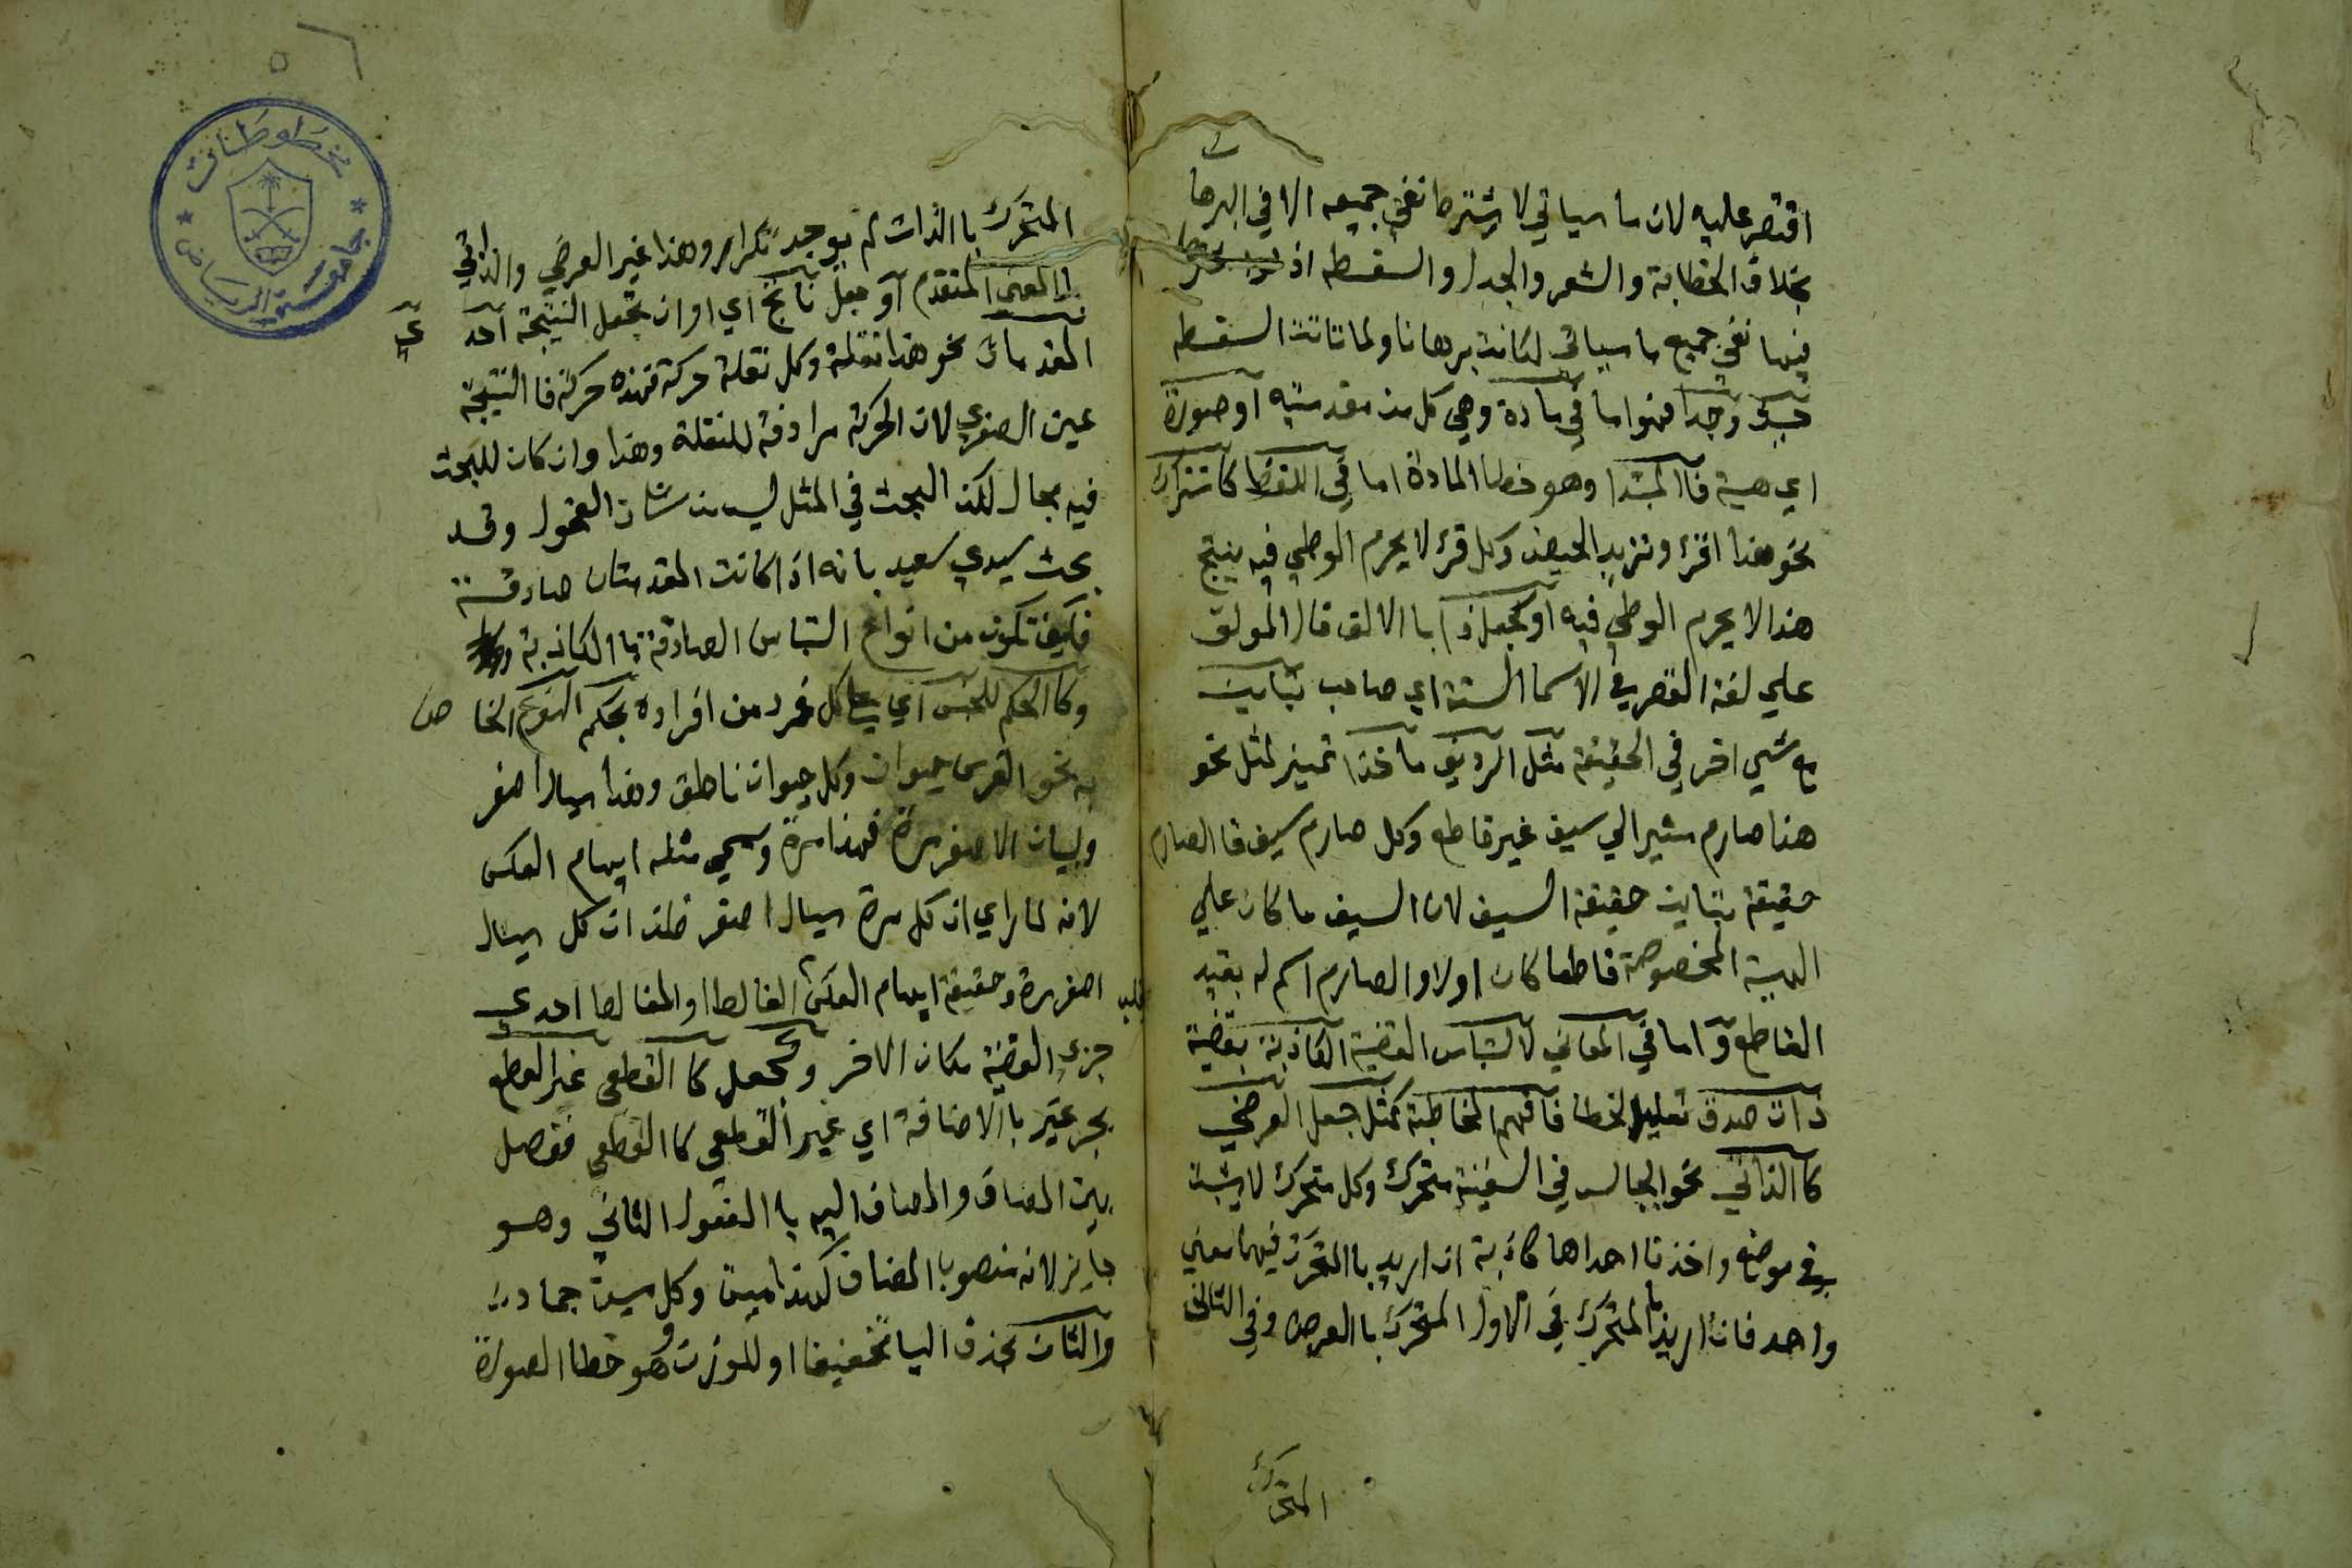 اقتصر عليه لان ما سياتي لا يشترط نفي جميعه الا في البرها
ن
بخلاف الخطابة والشعر والجدل والسفسطه اذ
فيها نفي جميع ما سياتي لكانت برهانا ولما تاتت السفسطه
حيث وجدا فهوا ما في مادة وهي كل من مقدمتيه او صورة
اي هيية فا المبتدا وهو خطا المادة اما في اللفظ كاشتراك
نحو هذا اقرء وتريد الحيض وكل قرء لا يحرم الوطي فيه ينتج
هذا لا يحرم الوطي فيه او كجعل ذا با الالف قال المولف
علي لغة القصر في الاسما الستة اي صاحب تباين
مع شي اخر في الحقيقة مثل الرديف ماخذا تمييز لمثل نحو
هذا صارم مشير الي سيف غير قاطع وكل صارم سيف فا الصارم
حقيقة تباين حقيقة السيف لان السيف ما كان علي
الهيية المخصوصة قاطعا كان اولا والصارم اسم له بقيد
القاطع واما في المعاني لالتباس القضية الكاذبة بقضية
ذات صدق تعليل لخطا فافهم المخاطبة كمثل جعل العرضي
كا الذاتي نحو الجالس في السفينة متحرك وكل متحرك لا يثبت
في موضع واخذنا احداها كاذبة ان اريد با المتحرك فيهما معني
واحد فان اريد با المتحرك في الاول المتحرك با العرض وفي الثاني
المتحرك
المتحرك با الذات لم يوجد تكرار وهذا غير العرضي والذاتي
با المعني المتقدم او جعل ناتج اي او ان تجعل النتيجة احد
ي
المقدمات نحو هذا نقلة وكل نقلة حركة فهذه حركة فا النتيجة
عين الصغري لان الحركة مرادفة للنقلة وهذا وان كان للبحث
فيه مجال لكن البحث في المثل ليس من شان الفحول وقد
بحث سيدي سعيد بانه اذا كانت المقدمتان صادقة
فكيف تكون من انواع التباس الصادقة با الكاذبة
وكا الحكم للجنس اي علي كل فرد من افراده بحكم النوع الخا ص
به نحو الفرس حيوان وكل حيوان ناطق وهذا سيال اصفر
وليان الاصفر مرة فهذا مرة وسمي مثله ايهام العكس
لانه لما راي ان كل مرة سيال اصفر ظن ان كل سيال
اصفر مرة وحقيقة ايهام العكس الغالط او المغالط احدي
جزء القضية مكان الاخر وكجعل كا القطعي غير القطعي
بجر غير با الاضافة اي غير القطعي كا القطعي ففصل
بين المضاف والمضاف اليه با المفعول الثاني وهو
جايز لانه منصوب با المضاف كهذا ميت وكل ميت جماد
والثان بحذف اليا تخفيفا او للوزن وهو خطا الصورة
مخطوطات
جامعة الرياض